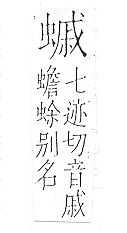 䗩
七迹切音戚
蟾蜍别名